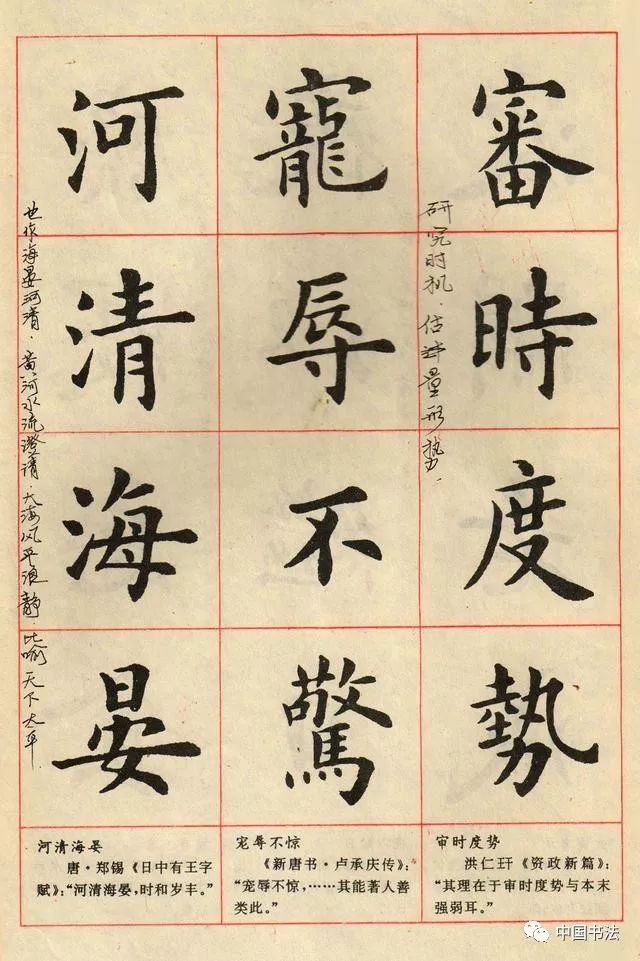 審時度勢
寵辱不驚
河清海晏
研究时机.估计量形势.
也作海晏河清.黄河水流澄清.大海风平浪静.比喻天下太平.
审时度势
洪仁玕《资政新篇》:
“其理在于审时度势与本末
强弱耳。”
宠辱不惊
《新唐书·卢承庆传》:
“宠辱不惊,……其能著人善
类此。”
河清海晏
唐·郑锡《日中有王字
赋》:“河清海晏,时和岁丰。”
中国书法